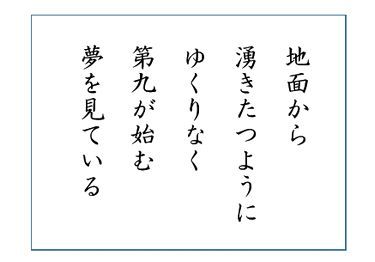 地面から
湧きたつように
ゆくりなく
第九が始む
夢を見ている